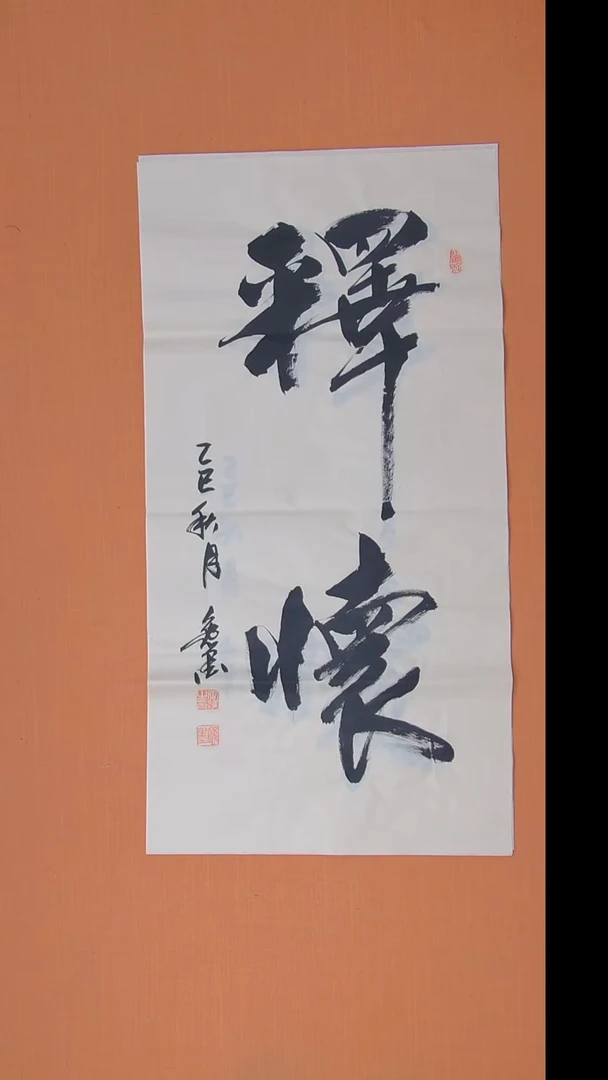 釋懷
乙巳秋月